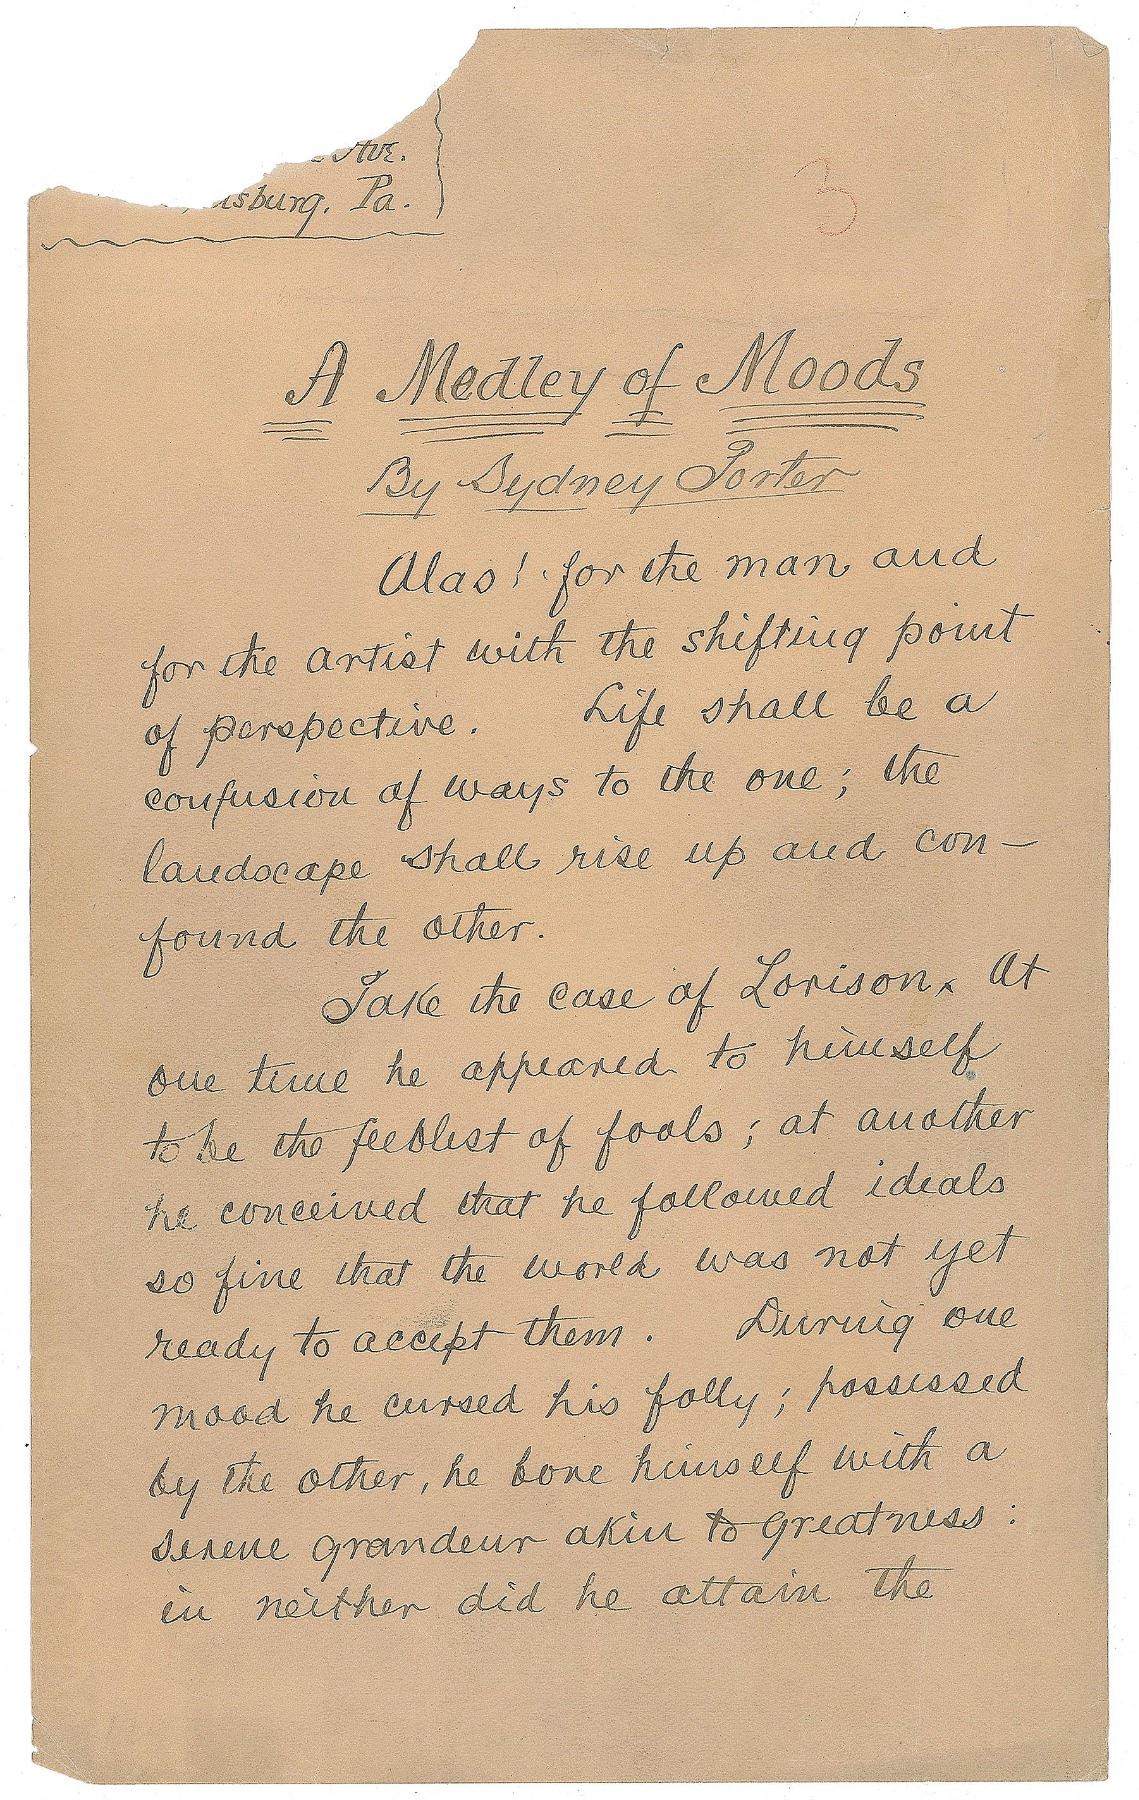 Ave.
Pa.
3
A Medley of Moods
By Sydney Porter
Alas! for the man and
for the artist with the shifting point
of perspective. Life shall be a
confusion of ways to the one; the
landscape shall rise up and con-
found the other.
Take the case of Lorison. At
one time he appeared to himself
to be the feeblest of fools; at another
he conceived that he followed ideals
so fine that the world was not yet
ready to accept them. During one
mood he cursed his folly; possessed
by the other, he bore himself with a
serene grandeur akin to greatness:
in neither did he attain the